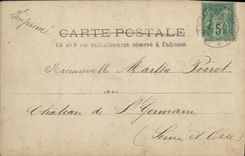 Imprimé
CARTE POSTALE
Ce côté est exclusivement réservé à l'adresse.
5
Mademoiselle Marthe Poirot
au
Château de St Germain
(Seine et Oise)